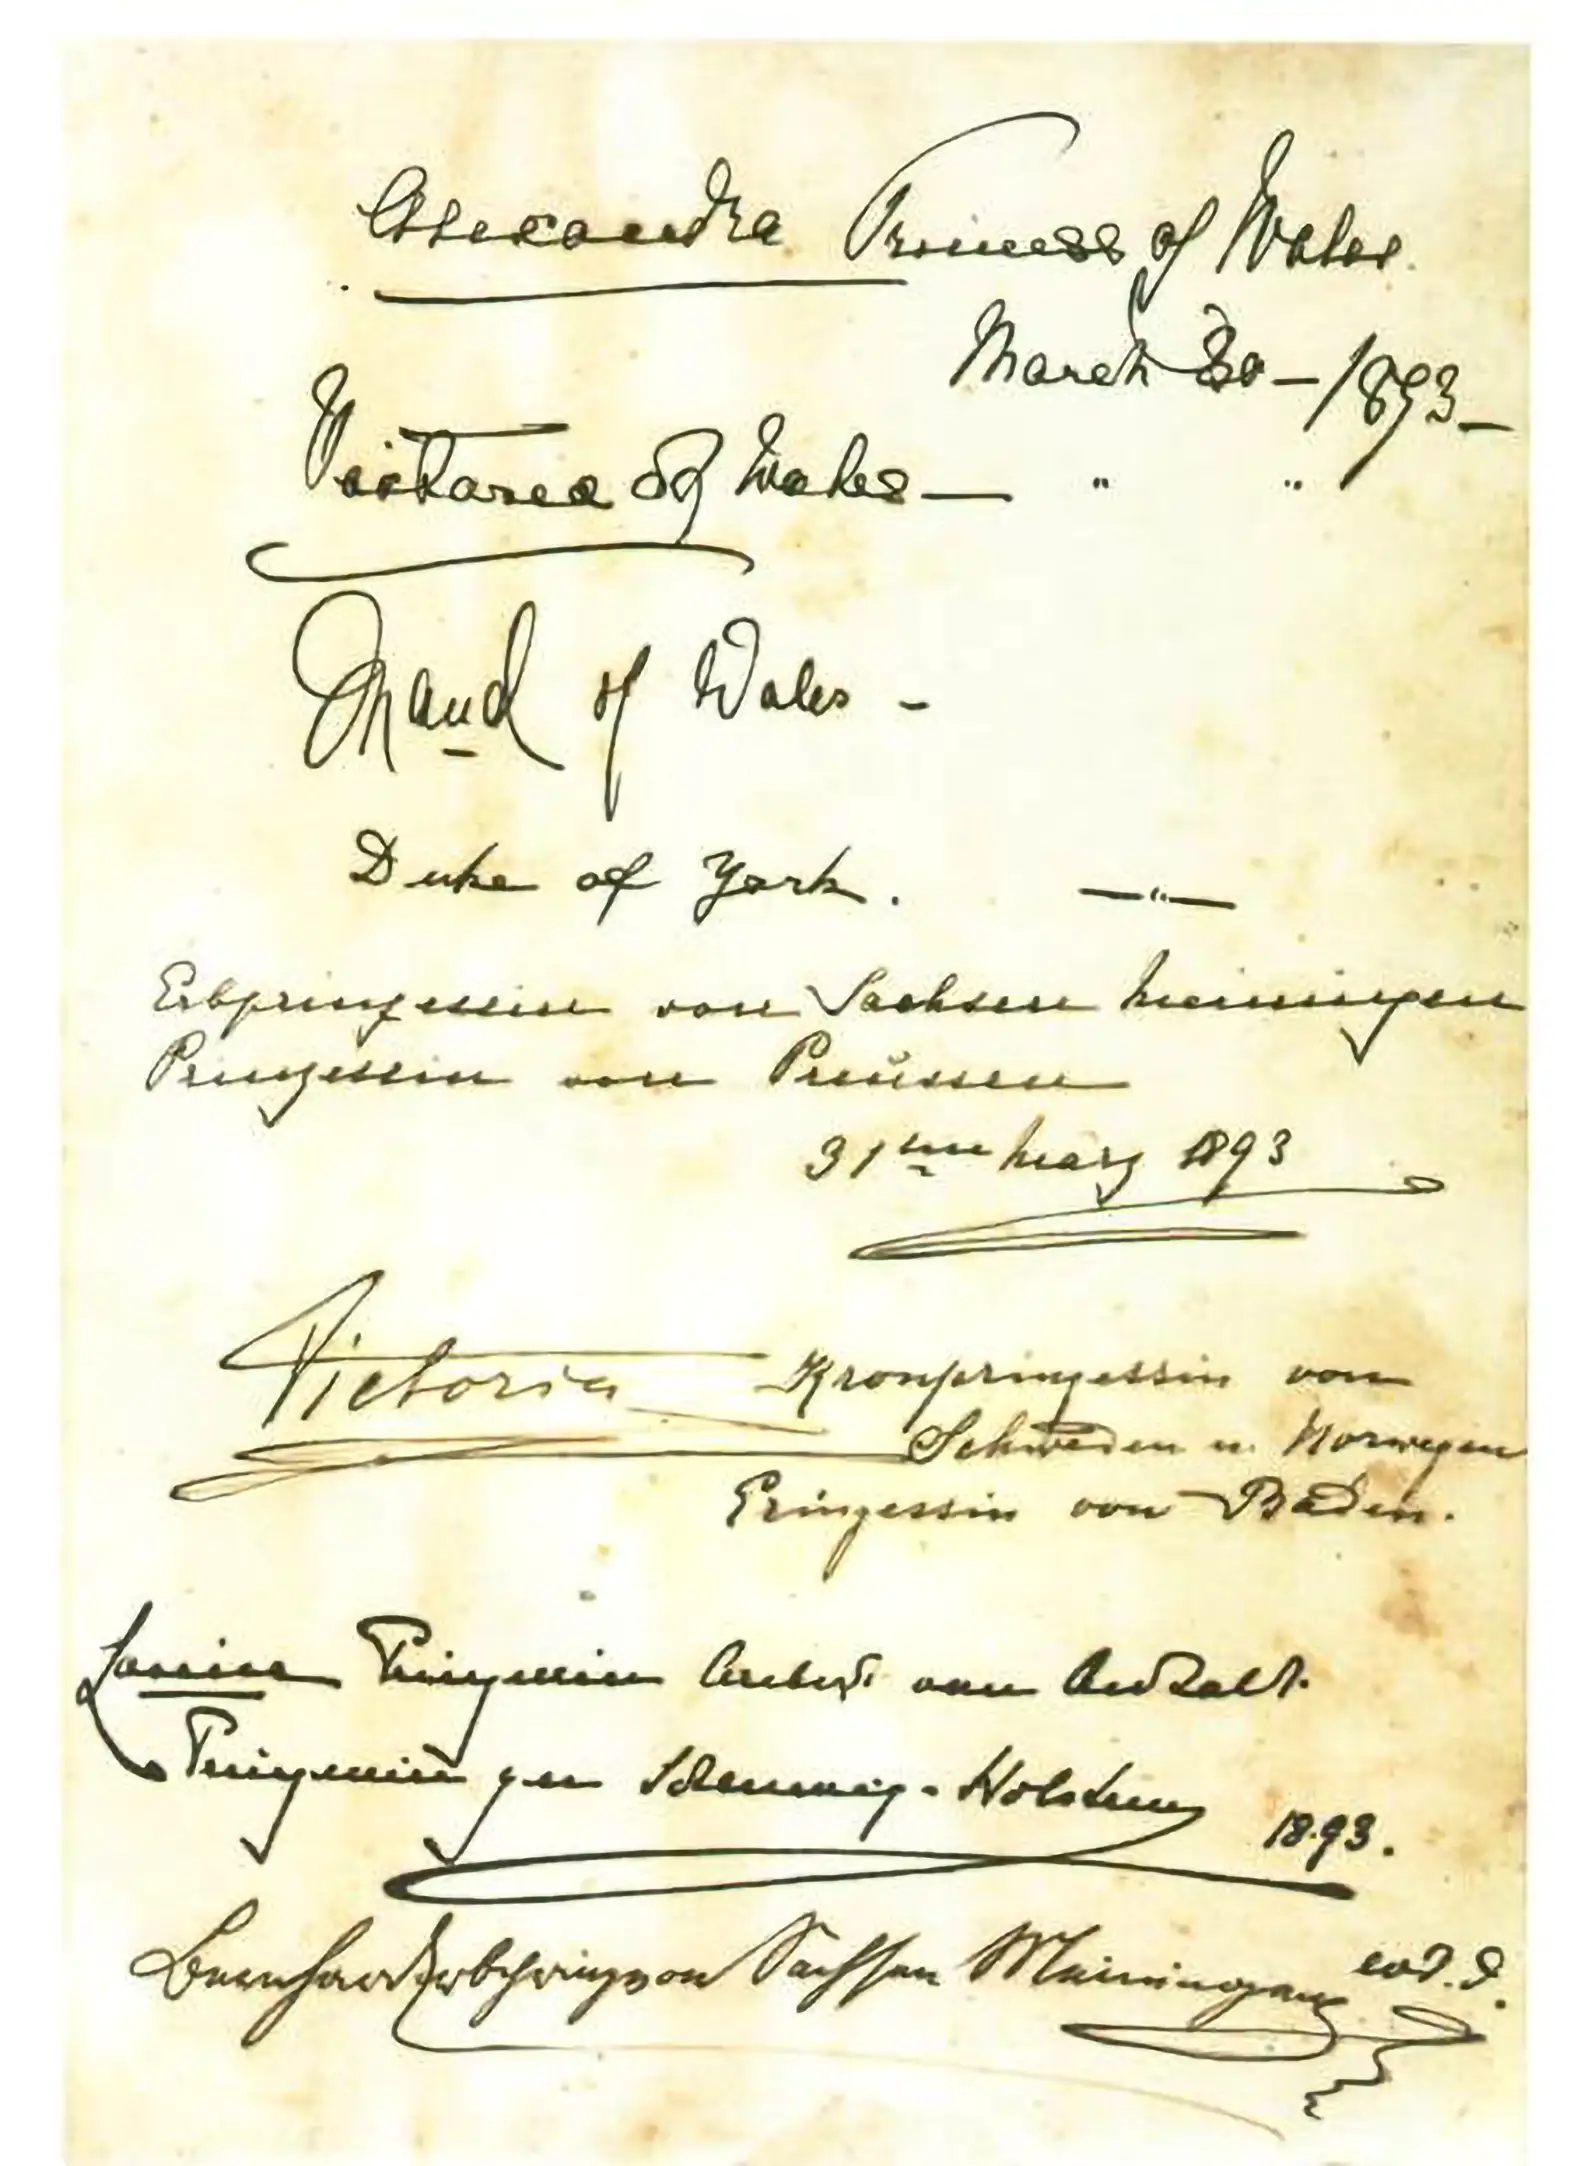 Alexandra Princess of Wales.
March 30 – 1893 –
Victoria of Wales — " "
Maud of Wales –
Duke of York. —"—
Erbprinzessin von Sachsen Meiningen
Prinzessin von Preussen
31 März 1893
Victoria Kronprinzessin von
Schweden u. Norwegen
Prinzessin von Baden.
Louise Prinzessin Aribert von Anhalt.
Prinzessin zu Schleswig-Holstein
1893.
Bernhard Erbprinz von Sachsen Meiningen